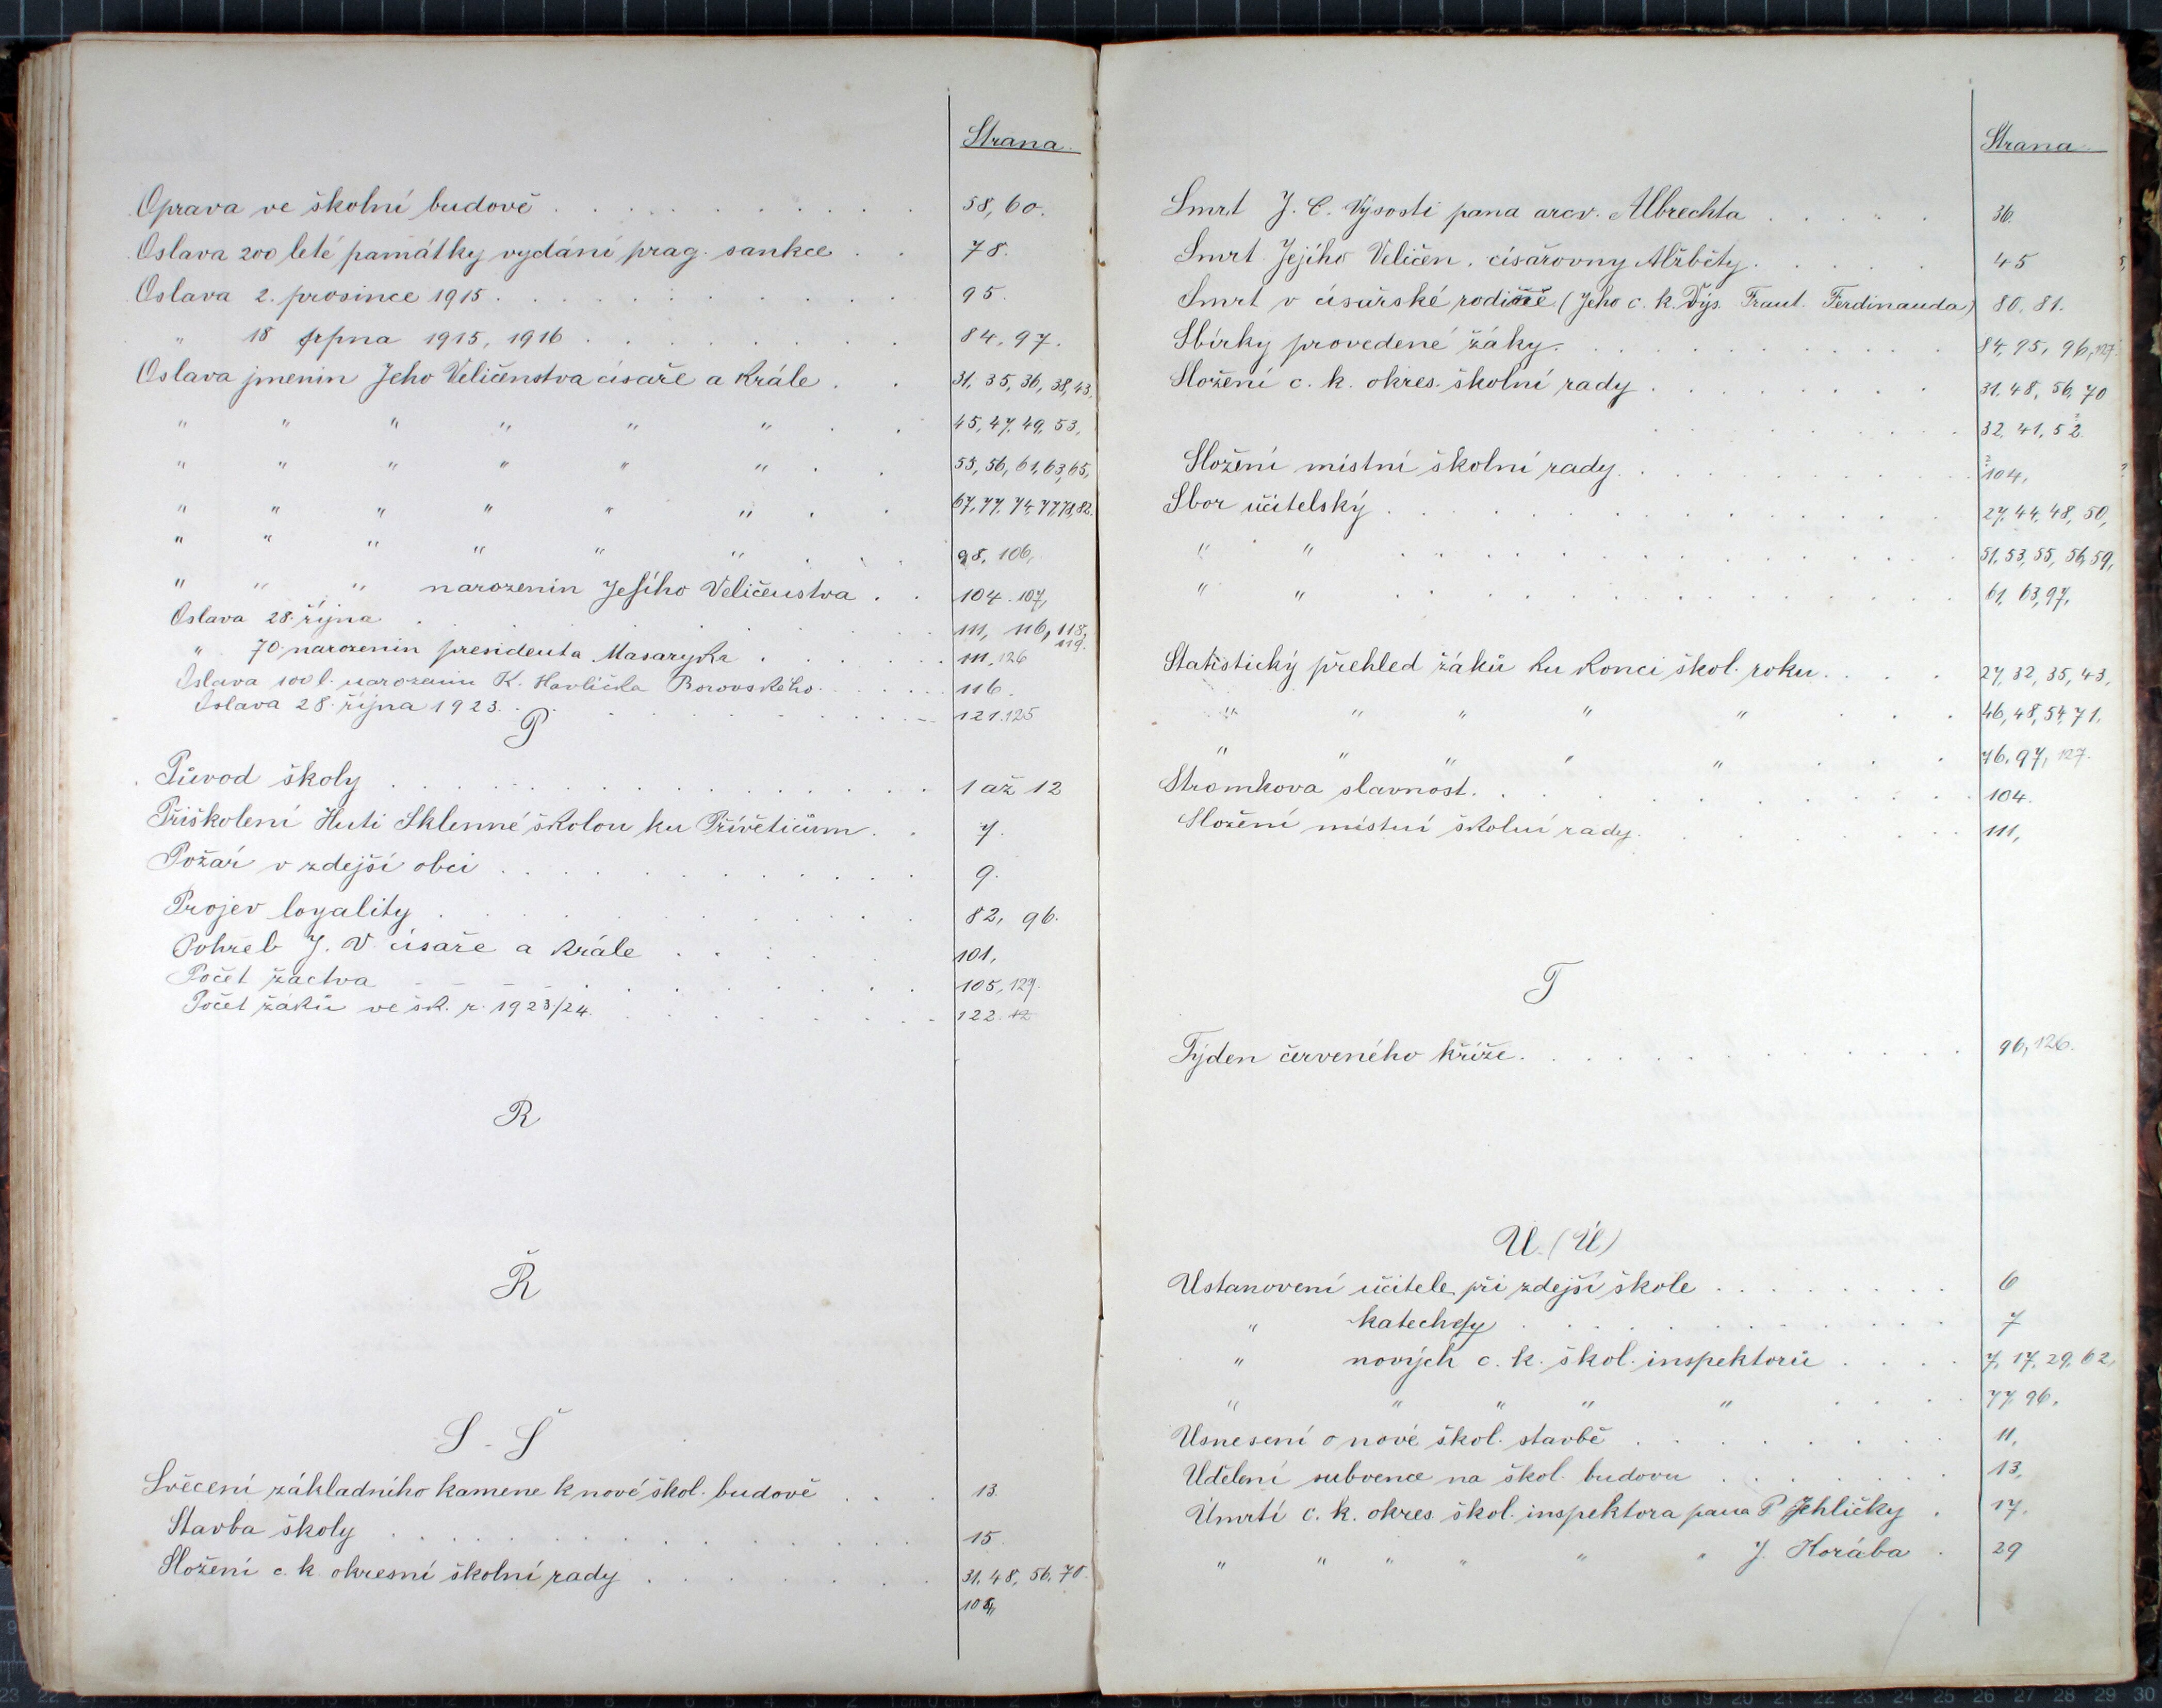 Strana
Oprava ve školní budově . . . 58, 60.
Oslava 200 leté památky vydání prag. sankce . . 78.
Oslava 2. prosince 1915 . . . 95.
" 18 srpna 1915, 1916 . . . 84, 97.
Oslava jmenin Jeho Veličenstva císaře a krále . . 31, 35, 36, 38, 43,
" " " " " " . . 45, 47, 49, 53,
" " " " " " . . 55, 56, 61, 63, 65,
" " " " " " . .
" " " " " " . . . 98, 106,
" " " narozenin Jejího Veličenstva . . 104. 107,
Oslava 28. října . . . 111, 116, 118, 119.
" 70. narozenin presidenta Masaryka . . . 111, 126
Oslava 100 l. narozenin K. Havlíčka Borovského . . . 116.
Oslava 28. října 1923. . . . 121. 125
P
Původ školy . . . 1 až 12
Přiškolení Huti Sklenné školou ku Přívěticům . . 7.
Požár v zdejší obci . . . 9.
Projev loyality . . . 82, 96.
Pohřeb J. V. císaře a krále . . . 101,
Počet žactva . . . 105, 127.
Počet žáků ve šk. r. 1923/24. . . . 122. 12
R
Ř
S - Š
Svěcení základního kamene k nové škol. budově . . . 13.
Stavba školy . . . 15.
Složení c. k. okresní školní rady . . . 31, 48, 56, 70.
Strana
Smrt J. C. Výsosti pana arcv. Albrechta . . . 36.
Smrt Jejího Veličen. císařovny Alžběty . . . 45
Smrt v císařské rodině (Jeho c. k. Výs. Frant. Ferdinanda) 80, 81.
Sbírky provedené žáky . . . 84, 95, 96, 127.
Složení c. k. okres. školní rady . . . 31, 48, 56, 70
. . . 32, 41, 52.
Složení místní školní rady . . . 104,
Sbor učitelský . . . 27, 44, 48, 50,
" " . . . 51, 53, 55, 56, 59,
" " . . . 61, 63, 97,
Statistický přehled žáků ku konci škol. roku . . . 27, 32, 35, 43,
" " " " " . . . 46, 48, 54, 71,
" " " " " . . . 76, 97, 127.
Stromkova slavnost. . . . 104.
Složení místní školní rady. . . . 111,
T
Týden červeného kříže. . . . 96, 126.
U. (Ú)
Ustanovení učitele při zdejší škole . . . 6
" katechety . . . 7
" nových c. k. škol. inspektorů . . . 7, 17, 29, 62,
" " " " " . . . 77, 96,
Usnesení o nové škol. stavbě . . . 11,
Udělení subvence na škol. budovu . . . 13,
Úmrtí c. k. okres. škol. inspektora pana P. Jehličky . 17.
" " " " " " J. Korába . 29